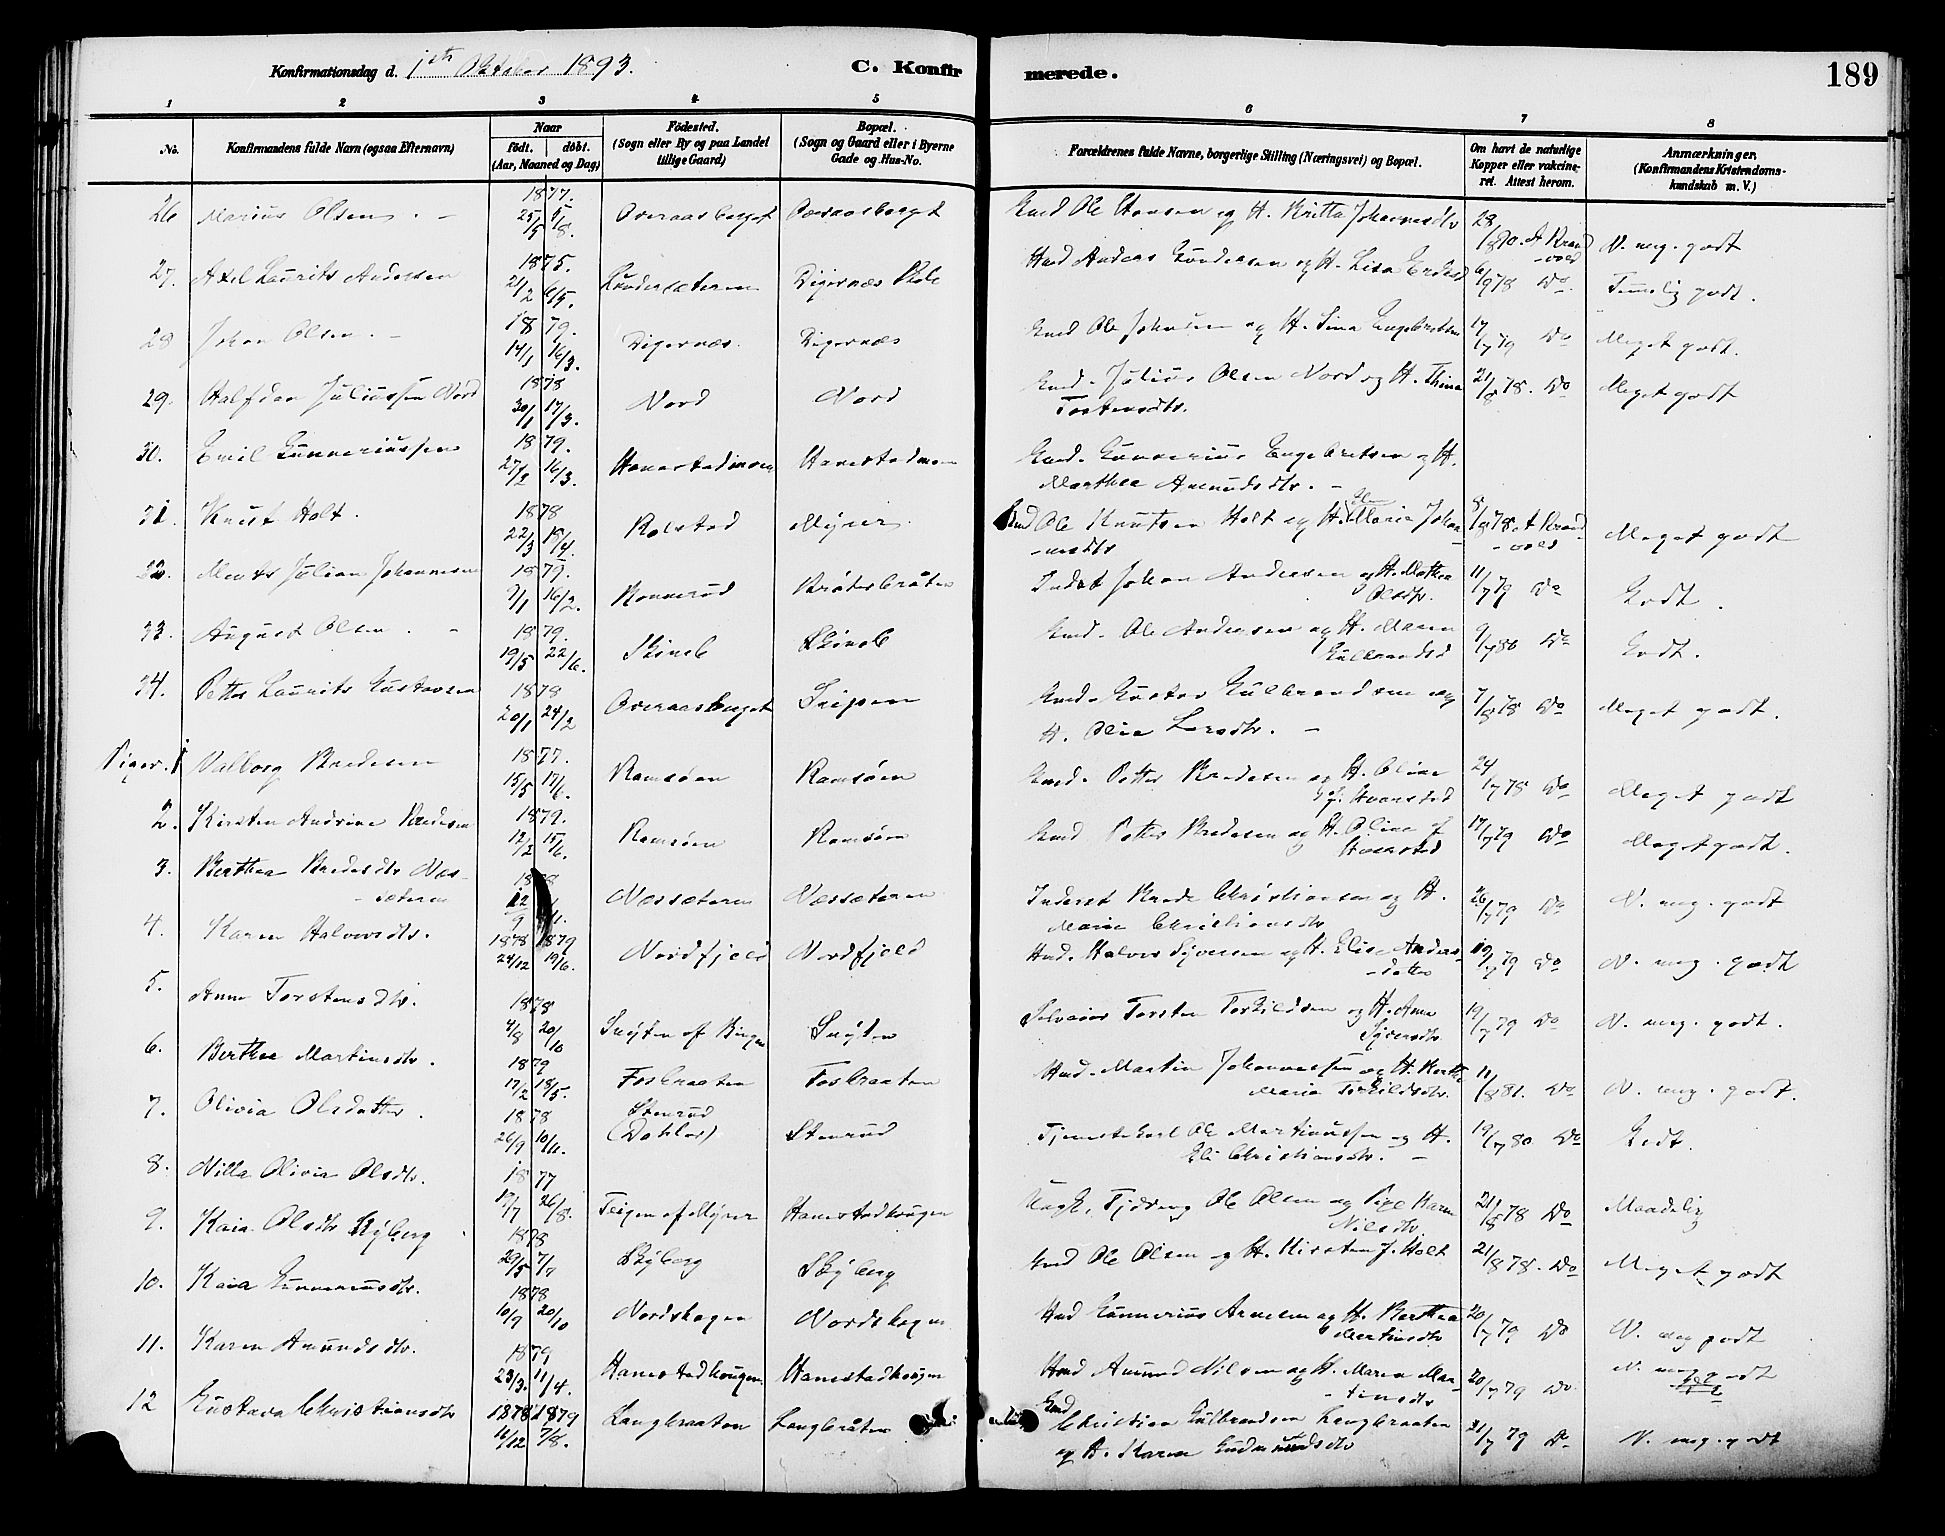 Konfirmationsdag d. 1ste Oktober 1893.
C. Konfirmerede.
189
1 2 3 4 5 6 7 8
No. Konfirmandens fulde Navn (ogsaa Efternavn) Naar født. døbt. (Aar, Maaned og Dag) Fødested. (Sogn eller By og paa Landet tillige Gaard) Bopæl. (Sogn og Gaard eller i Byerne Gade og Hus-No. Forældrenes fulde Navne, borgerlige Stilling (Næringsvei) og Bopæl. Om havt de naturlige Kopper eller vakcineret. Attest herom. Anmærkninger. (Konfirmandens Kristendomskundskab m. V.)
26 Marius Olsen. 1877. 25/5 5/8. Overaasberget Overaasberget Gmd Ole Hansen og H. Britta Johannesdtr 28/8 80. A Krandvold N. meg. godt
27. Axel Laurits Andersen 1875. 21/2 6/5. Lundersæteren Digernæs Skole Hmd Anders Gundersen og H. Lisa 6/9 78 Do. Temmelig godt.
28 Johan Olsen. 1879. 14/1 16/3. Digernæs. Digernæs Gmd Ole Johnsen og H. Lina Engebretsen 17/7 79 Do Meget godt.
29. Halfdan Juliussen Nord 1878 30/1 17/3. Nord Nord Gmd. Julius Olsen Nord og H. Thina Torstensdtr. 21/8 78. Do Meget godt
30. Emil Gunneriussen 1879. 27/2 16/3. Hanestadmoen Hanestadmoen Gmd. Gunnerius Engebretsen og H. Marthea Amundsdtr.
31. Knut Holt. 1878 22/3 18/4. Rolstad Myrer Gmd Ole Knutsen Holt og H. Maria Johannesdtr 8/8 78. A Krandvold Meget godt
32. Ments Julian Johannesen 1879. 7/1 16/2. Konnerud Bråtebråten Inderst Johan Andersen og H. Mathea Olsdtr. 11/7 79 Do Godt.
33. August Olsen. 1879. 19/5 22/6. Skineb Skineb Gmd. Ole Andersen og H. Maren Gulbrandsd 9/7 80 Do Godt.
34. Petter Laurits Gustavsen 1878 20/1 24/2 Overaasberget Snipen Gmd. Gustav Gulbrandsen og H. Olia Larsdtr. 7/8 78 Do Meget godt.
Piger. 1 Valborg Bredesen 1877. 15/5 17/6. Ramsøen Ramsøen Gmd. Petter Bredesen og H. Oline f. Hvarstad 24/7 78 Do Meget godt
2. Kirsten Andrine Bredesen 1879. 12/2 15/6. Ramsøen Ramsøen Gmd Petter Bredesen og H. Oline f. Hvarstad 17/7 79 Do Meget godt.
3. Berthea Bredesdtr Næssæteren 12/9 Næssæteren Næssæteren Inderst Brede Christiansen og H. Marie Christiansdtr 26/7 79 Do N. meg. godt
4. Karen Halvorsdtr. 1878 1879 24/12 19/6. Nordfjeld Nordfjeld Hmd. Halvor Syversen og H. Elise Andersdatter 19/7 79 Do N. meg. godt
5. Anne Torstensdtr. 1878 4/8 20/10 Snøten af Bingen Snøten Selveier Torsten Torkildsen og H. Anne Syversdtr. 19/7 79 Do N. meg. godt.
6. Berthea Martinsdtr. 1879 17/2 18/5. Fosbraaten Fosbraaten Hmd. Martin Johannessen og H. Berthe Marie Torkildsdtr. 11/8 81. Do N. meg. godt.
7. Olivia Olsdatter. 1878 26/9 10/11. Stenrud (Dahler) Stenrud Tjenestekarl Ole Martinussen og H. Eli Christiansdtr. 19/7 80 Do Godt.
8. Nilla Olivia Olsdtr. 1877 19/7 26/8. Teigen af Myrer Hanestadhougen Ungk. Tjdreng Ole Olsen og Pige Karen Nilsdtr 21/8 78 Do Maadelig
9. Kaia Olsdtr Skyberg 1878 29/5 7/7 Skyberg Skyberg Gmd Ole Olsen og H. Kirsten J. Holt 21/8 78. Do Meget godt
10. Kaia Gunneriusdtr. 1878 10/9 20/10 Nordskogen Nordskogen Hmd Gunnerius Arnesen og H. Berthea Martinsdtr 20/7 79 Do N. meg godt
11. Karen Amundsdtr. 1879 23/3. 11/4. Hanestadhougen Hanestadhougen Hmd Amund Nilsen og H. Maren Martinsdtr 20/7 79 Do. N. meg. godt
12 Gustava Christiansdtr 1878 1879 16/12 7/8. Langbraaten Langbråten Gmd Christian Gulbrandsen Langbraaten og H. Karen Gudmundsdtr 21/7 79 Do N. meg. godt